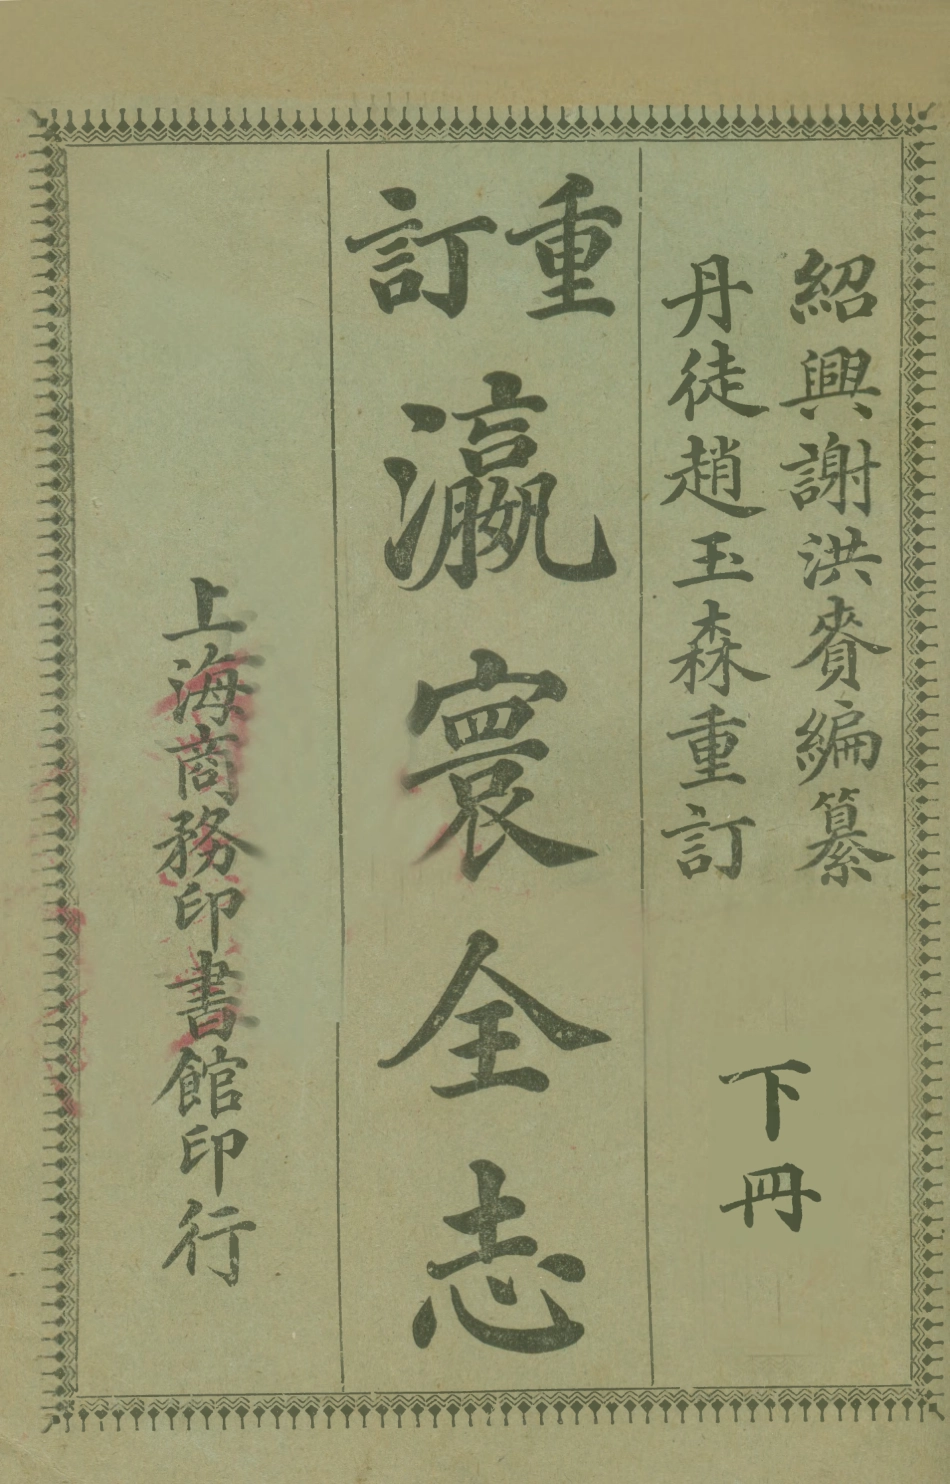 紹興謝洪賚編纂
丹徒趙玉森重訂
下冊
重訂
瀛寰全志
上海商務印書館印行